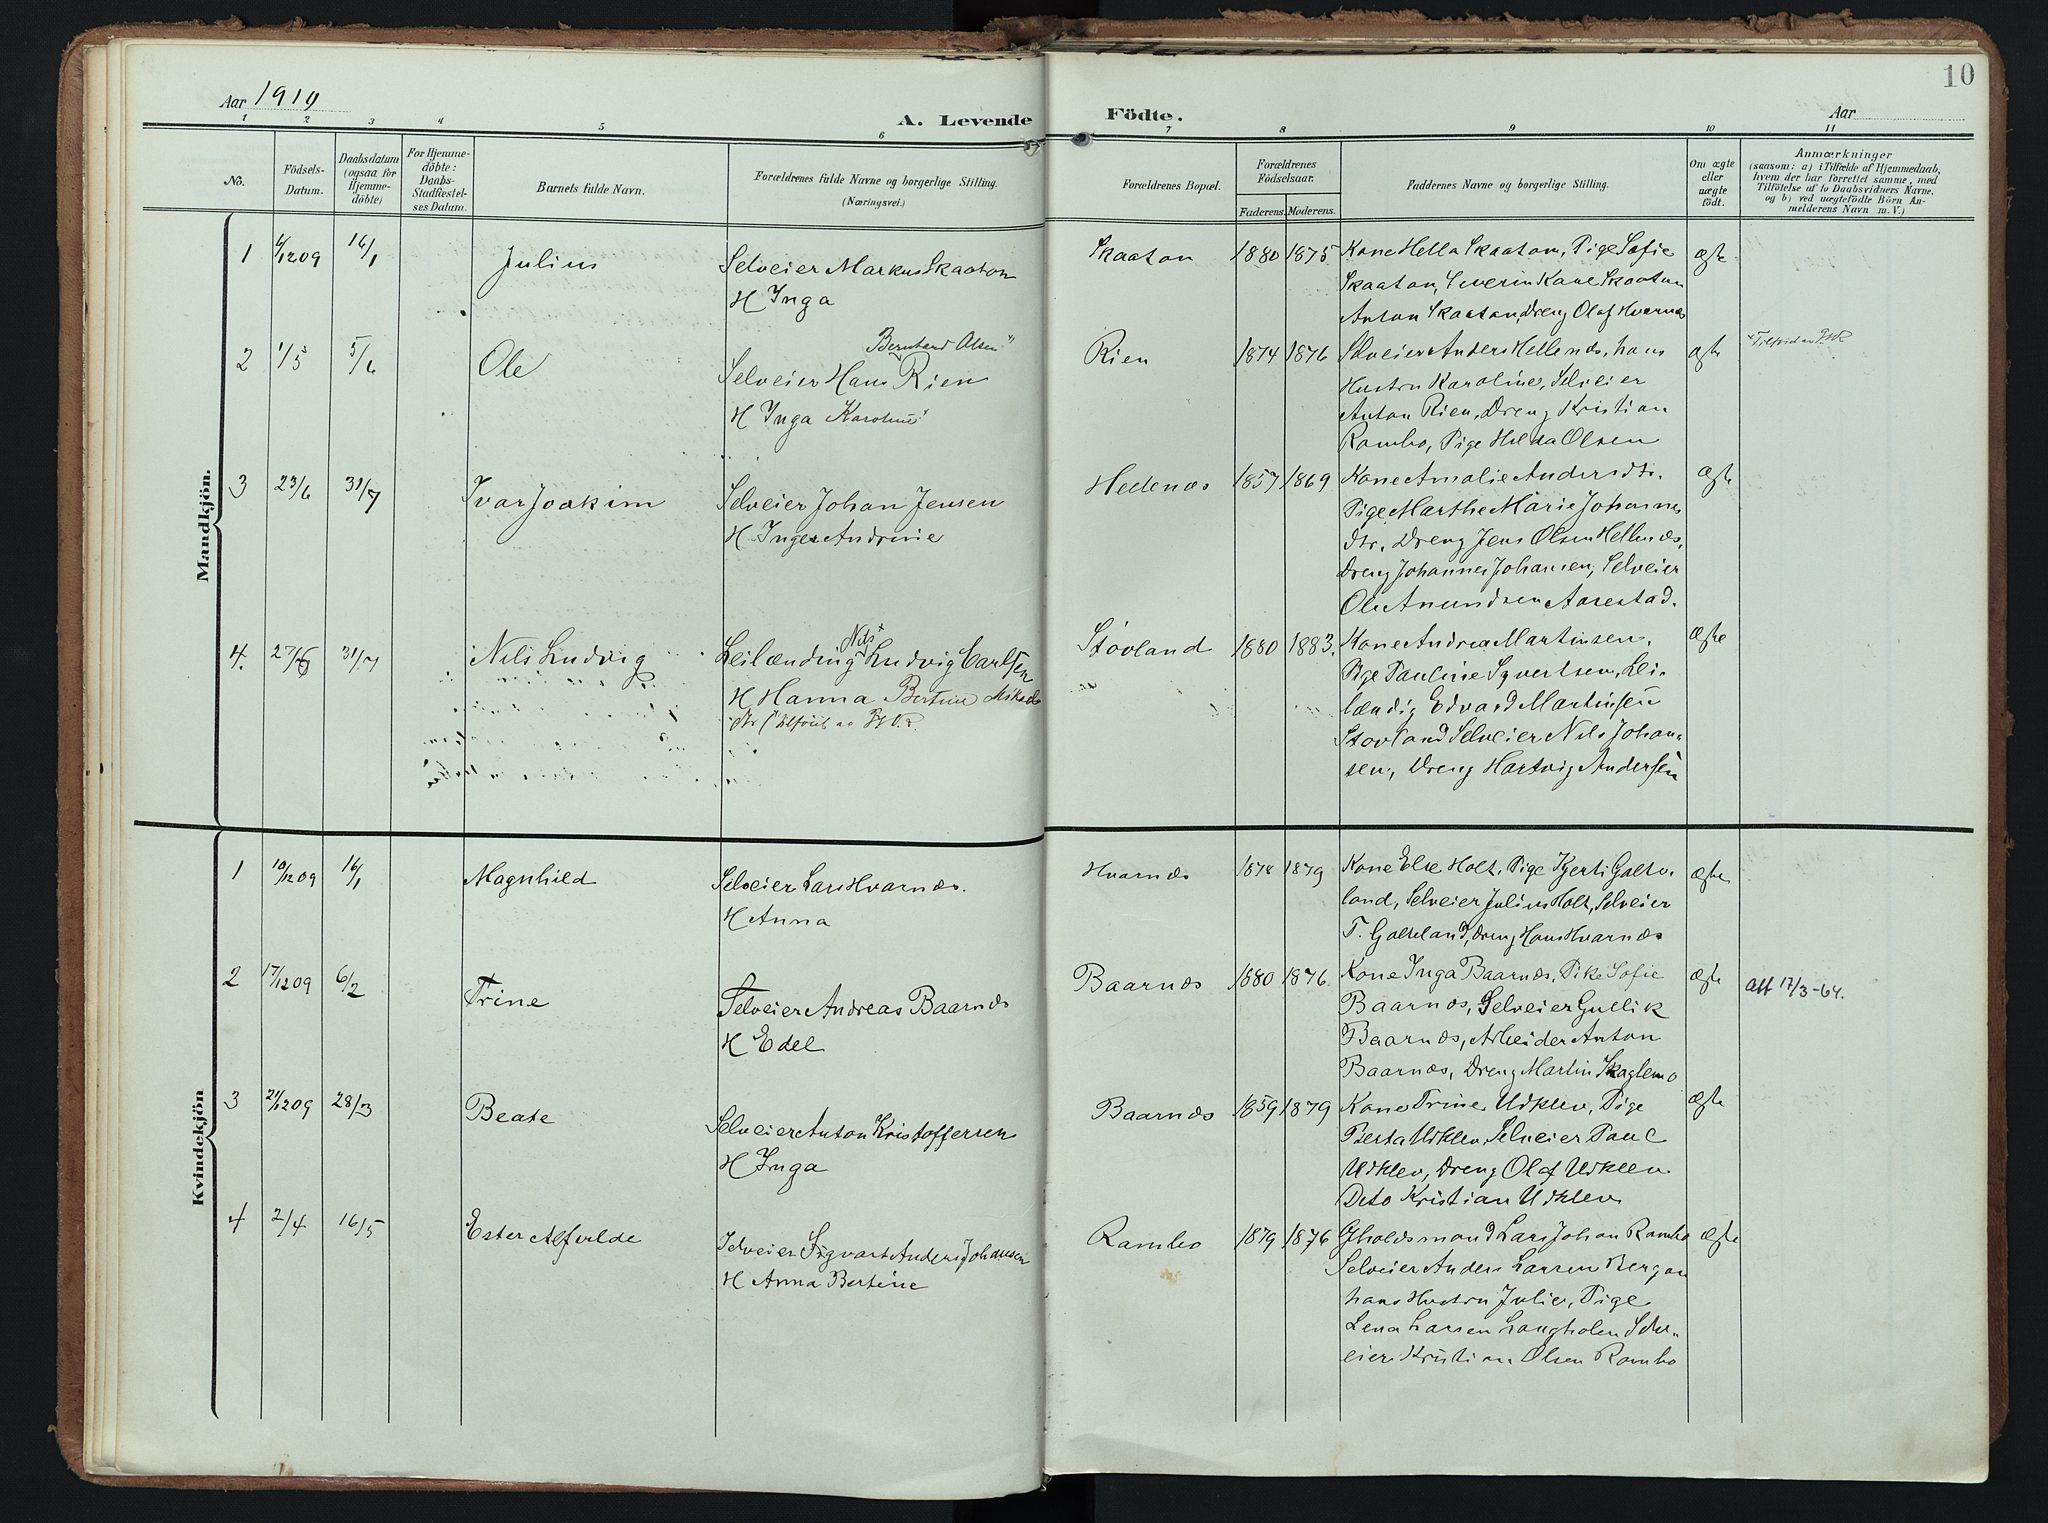 Aar 1910
A. Levende
Födte.
Aar
10
1 2 3 4 5 6 7 8 9 10 11
No.
Födsels-
Datum.
Daabsdatum
(ogsaa for
Hjemme-
döbte)
For Hjemme-
döbte:
Daabs-
Stadfæstel-
ses Datum.
Barnets fulde Navn.
Forældrenes fulde Navne og borgerlige Stilling.
(Næringsvei.)
Forældrenes Bopæl.
Forældrenes
Födselsaar.
Faderens. Moderens.
Faddernes Navne og borgerlige Stilling.
Om ægte
eller
uægte
födt.
Anmærkninger
(saasom: a) i Tilfælde af Hjemmedaab,
hvem der har forrettet samme, med
Tilföielse af to Daabsvidners Navne,
og b) ved uægtefödte Börn An-
melderens Navn m. V.)
Mandkjön.
1 6/12 09 16/1 Julius Selveier Markus Skaaton
H Inga
Skaaton 1880 1875 Kone Hella Skaaton, Pige Sofie
Skaaton, Severin Kane Skaaton
Anton Skaaton, Dreng Olaf Hvarnæs
ægte
2 1/5 5/6 Ole Bernhard Olsen"
Selveier Hans Rien
H Inga Karoline"
Rien 1874 1876 Selveier Anders Hellenæs, hans
Hustru Karoline, Selveier
Anton Rien, Dreng Kristian
Rambo, Pige Hilda Olsen
ægte
3 23/6 31/7 Ivar Joakim Selveier Johan Jensen
H Inger Andrine
Hellenæs 1857 1869 Kone Amalie Andersdtr.
Pige Marthe Marie Johannes
dtr. Dreng Jens Olsen Hellenæs,
Dreng Johannes Johansen, Selveier
Ole Amundsen Aarestad.
ægte
4. 27/6 31/7 Nils Ludvig Nils
Leilænding Ludvig Carlsen
H Hanna Bertine
Støvland 1880 1883. Kone Andrea Martinsen.
Pige Pauline Syvertsen, Lei-
lændig Edvard Martinsen
Støvland Selveier Nils Johan-
sen, Dreng Hartvig Andersen
ægte
Kvindekjön
1 10/12 09 16/1 Magnhild Selveier Lars Hvarnæs.
H Anna
Hvarnæs 1878 1879 Kone Else Holt, Pige Kjerti Galte-
land, Selveier Julius Holt, Selveier
T. Galteland, dreng Hans Hvarnæs
ægte
2 17/12 09 6/2 Trine Selveier Andreas Baarnæs
H Edel
Baarnæs 1880 1876 Kone Inga Baarnæs, Pike Sofie
Baarnæs, Selveier Gullik
Baarnæs, Arbeider Anton
Baarnæs, Dreng Martin Skaglemo
ægte
att 17/3-64.
3 21/12 09 28/3 Beate Selveier Anton Kristoffersen
H Inga
Baarnæs 1859 1879 Kone Trine Udklev, Pige
Berta Udklev, Selveier Paul
Udklev, Dreng Olaf Udklev
Dito Kristian Udklev
ægte
4 2/4 16/5 Ester Alfhilde Selveier Sigvart Anders Johansen
H Anna Bertine
Rambo 1879 1876 Lars Johan Rambo
Selveier Anders Larsen Bergan
hans Hustru Julie, Pige
Lena Larsen Langholen Selv-
eier Kristian Olsen Rambo
ægte